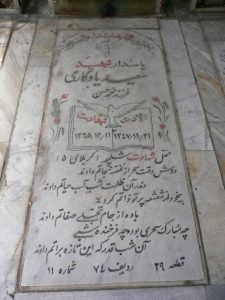 پاسدار شهید
سعید یادگاری
فرزند محمدحسن
ولادت شهادت
۱۳۴۷،۱۱،۲۱ ۱۳۶۵،۱۲،۱۱
محل شهادت شلمچه (کربلای ۵)
دوش وقت سحر از غصه نجاتم دادند
وندر آن ظلمت شب آب حیاتم دادند
بیخود از شعشعه پرتو ذاتم کردند
باده از جام تجلی صفاتم دادند
چه مبارک سحری بود و چه فرخنده شبی
آن شب قدر که این تازه براتم دادند
قطعه ۲۹ ردیف ۷۴ شماره ۱۱